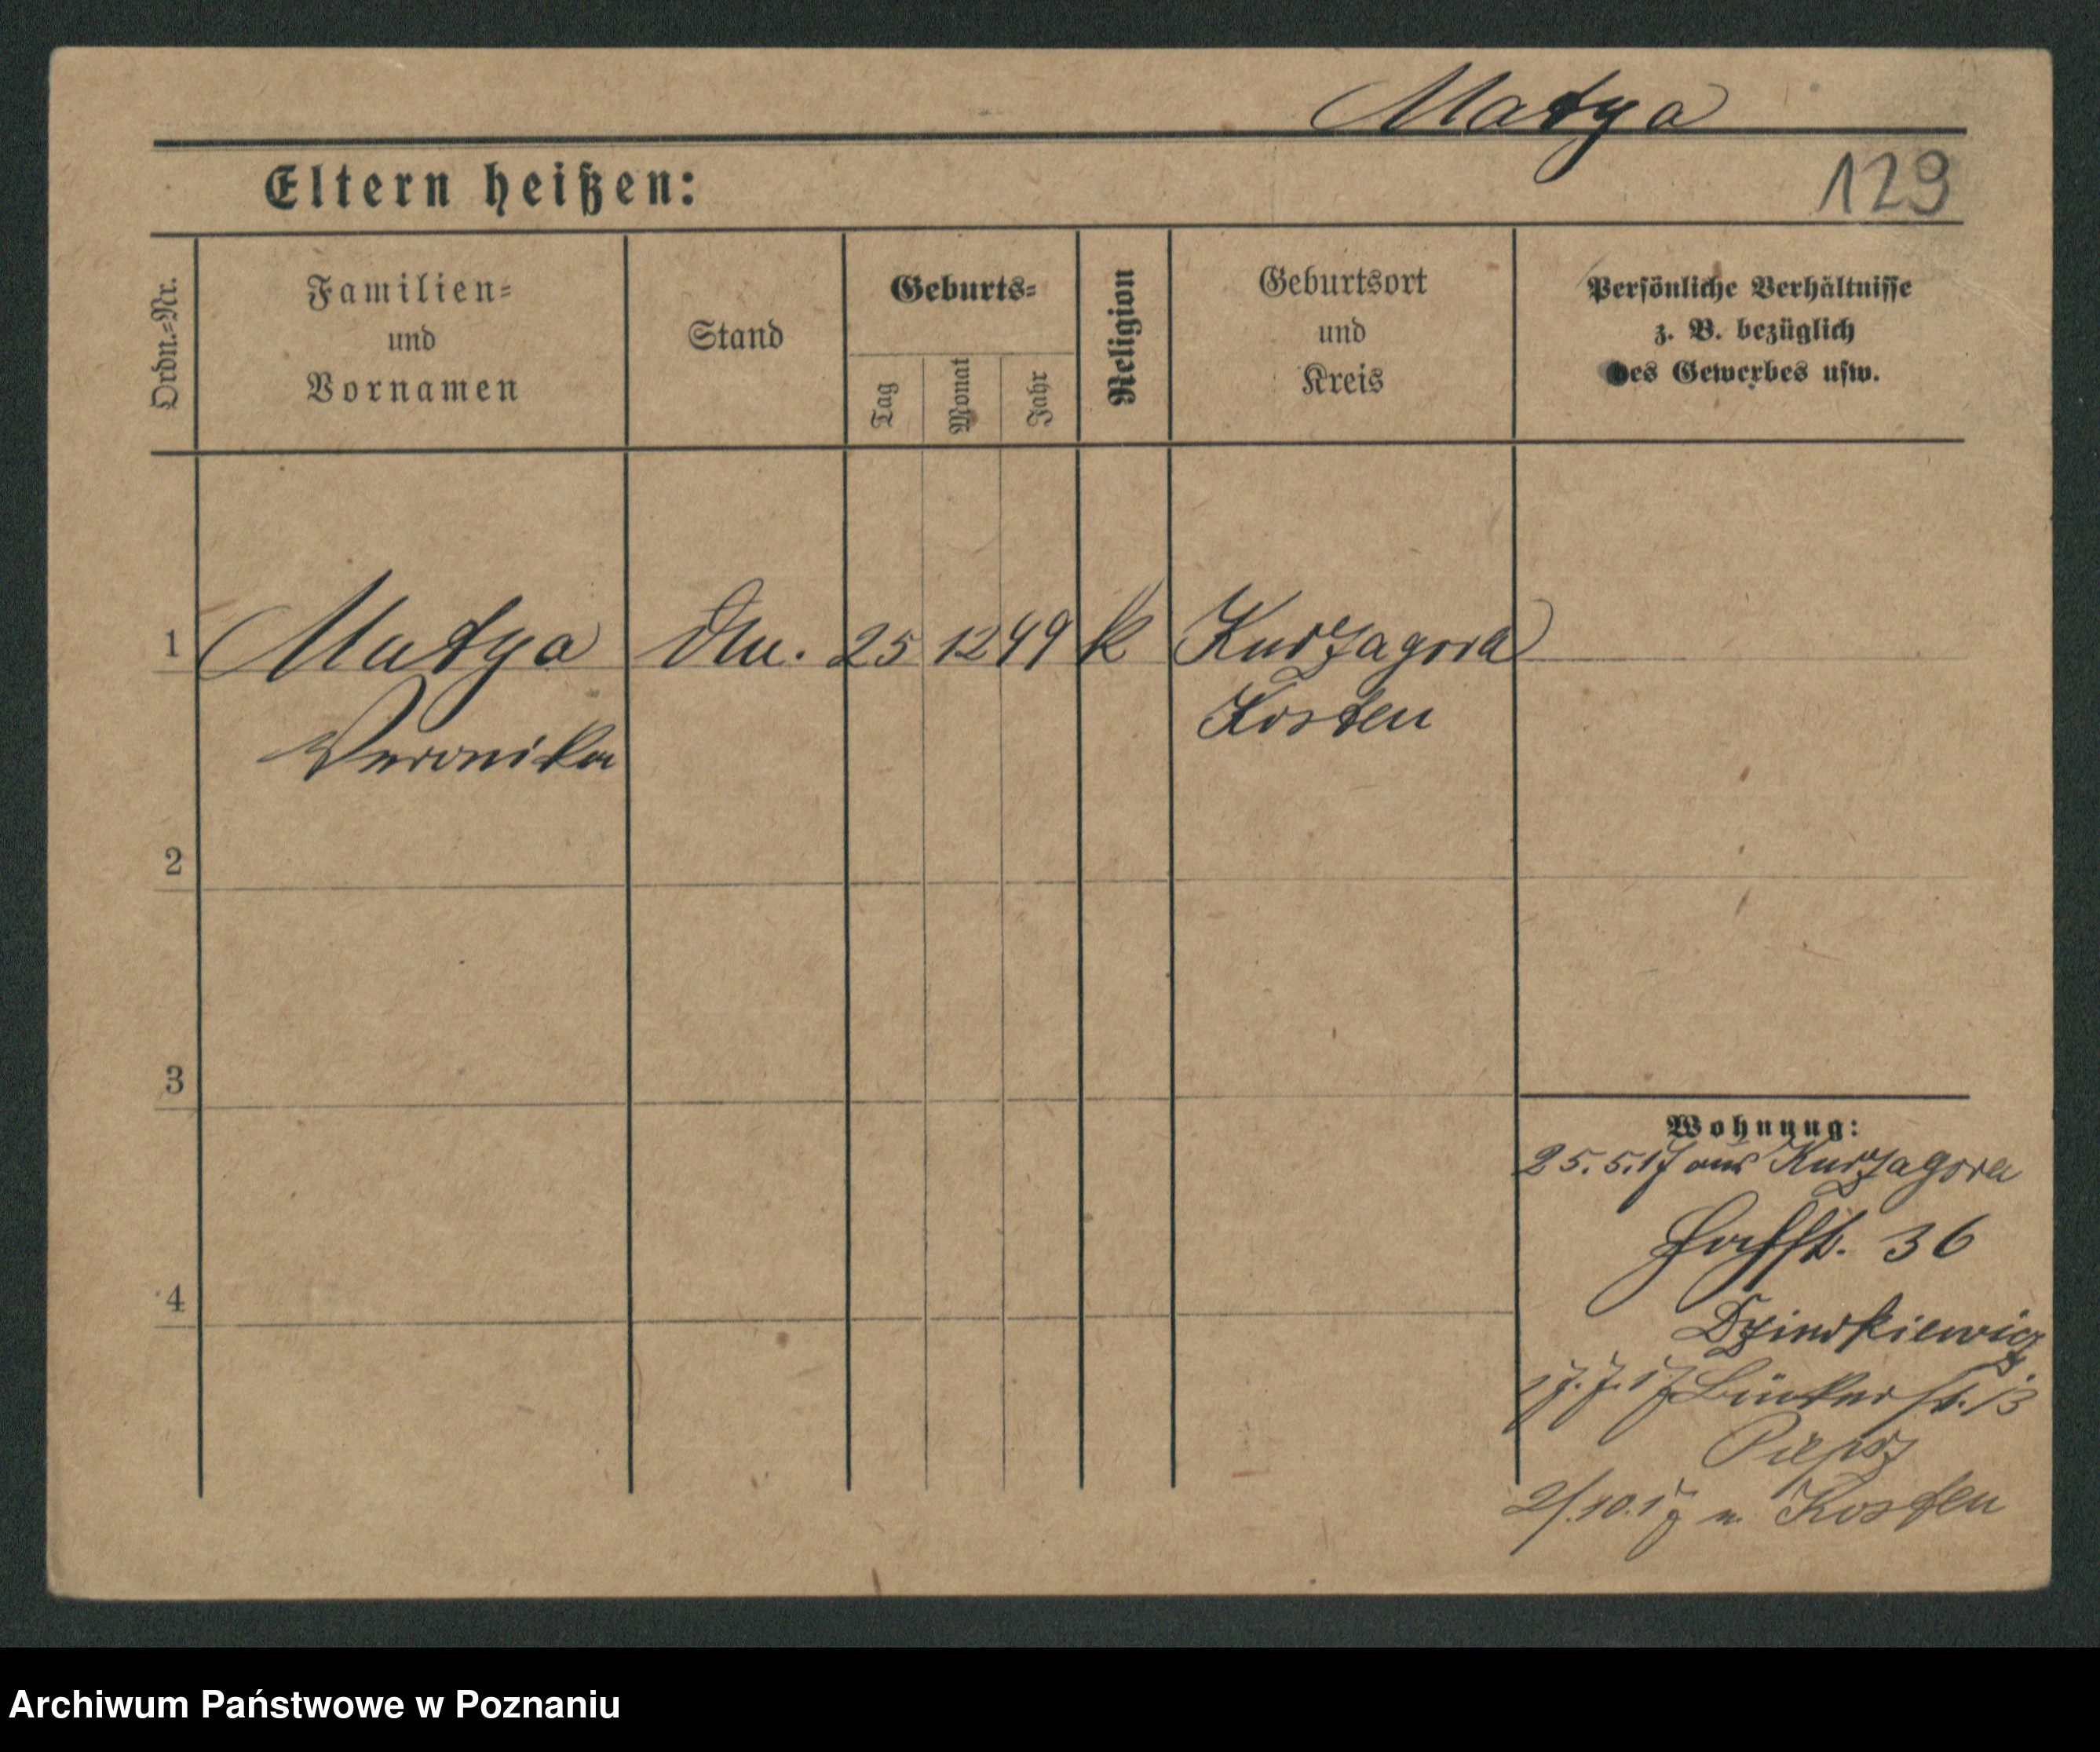 Matya
Eltern heißen:
129
Ordn.=Nr.
Familien=
und
Vornamen
Stand
Geburts=
Tag
Monat
Jahr
Religion
Geburtsort
und
Kreis
Persönliche Verhältnisse
z. B. bezüglich
des Gewerbes usw.
1 Matya 25 12 99 k Kurzagora
Veronika Kosten
2
3
4
Wohnung:
25.5.17 aus Kurzagora
36
17.7.17 Bäckerst. 13
2/.10.17 n. Kosten
Archiwum Państwowe w Poznaniu